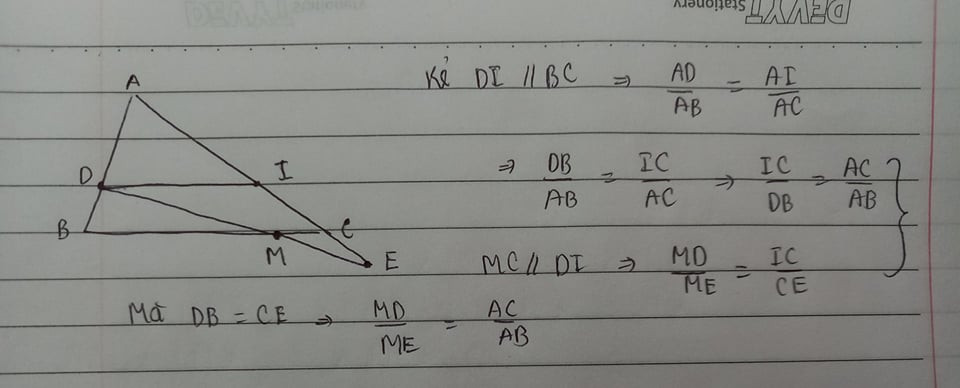 DEVYT
Stationery
A
Kẻ DI // BC ⇒ AD/AB = AI/AC
D I
⇒ DB/AB = IC/AC ⇒ IC/DB = AC/AB
B M C
E
MC // DI ⇒ MD/ME = IC/CE
Mà DB = CE ⇒ MD/ME = AC/AB